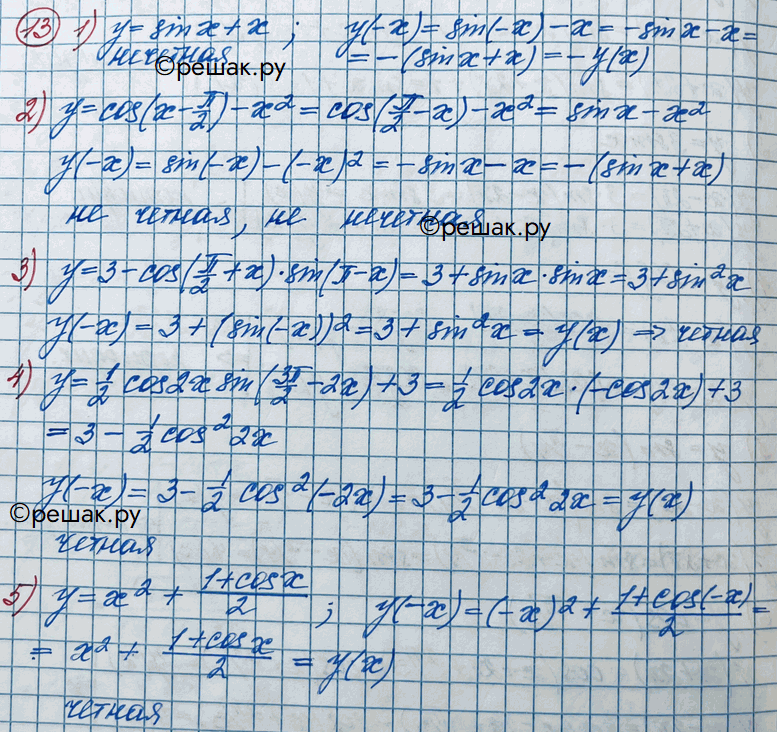 13 1) y = sin x + x ; y(-x) = sin(-x) - x = - sin x - x =
нечетная = - (sin x + x) = - y(x)
©решак.ру
2) y = cos(x - π/2) - x² = cos(π/2 - x) - x² = sin x - x²
y(-x) = sin(-x) - (-x)² = - sin x - x = - (sin x + x)
не четная, не нечетная
©решак.ру
3) y = 3 - cos(π/2 + x) · sin(π - x) = 3 + sin x · sin x = 3 + sin² x
y(-x) = 3 + (sin(-x))² = 3 + sin² x = y(x) ⇒ четная
4) y = 1/2 cos 2x sin(3π/2 - 2x) + 3 = 1/2 cos 2x · (- cos 2x) + 3
= 3 - 1/2 cos² 2x
y(-x) = 3 - 1/2 cos² (-2x) = 3 - 1/2 cos² 2x = y(x)
©решак.ру
четная
5) y = x² + (1 + cos x)/2 ; y(-x) = (-x)² + (1 + cos(-x))/2 =
= x² + (1 + cos x)/2 = y(x)
четная